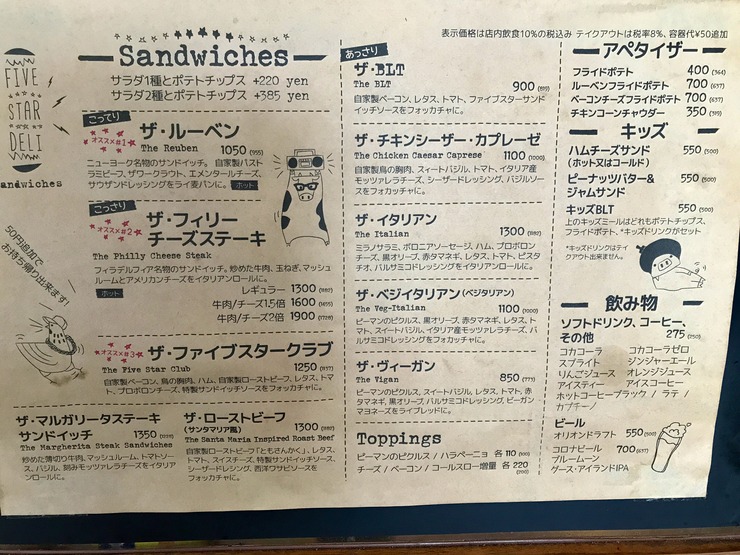 表示価格は店内飲食10%の税込み テイクアウトは税率8%、容器代¥50追加
FIVE
STAR
DELI
andwiches
50円追加で
お持ち帰り出来ます!
Sandwiches
サラダ1種とポテトチップス +220 yen
サラダ2種とポテトチップス +385 yen
こってり
オススメ#1
ザ・ルーベン
The Reuben 1050 (955)
ニューヨーク名物のサンドイッチ。自家製パスト
ラミビーフ、ザワークラウト、エメンタールチーズ、
サウザンドレッシングをライ麦パンに。 ホット
こっさり
オススメ#2
ザ・フィリー
チーズステーキ
The Philly Cheese Steak
フィラデルフィア名物のサンドイッチ。炒めた牛肉、玉ねぎ、マッシュ
ルームとアメリカンチーズをイタリアンロールに。
ホット
レギュラー 1300 (1182)
牛肉/チーズ1.5倍 1600 (1455)
牛肉/チーズ2倍 1900 (1728)
オススメ#3
ザ・ファイブスタークラブ
The Five Star Club 1250 (1137)
自家製ベーコン、鳥の胸肉、ハム、自家製ローストビーフ、レタス、トマ
ト、プロボロンチーズ、特製サンドイッチソースをフォッカチャに。
ザ・マルガリータステーキ
サンドイッチ 1350
The Margherita Steak Sandwiches
炒めた薄切り牛肉、マッシュルーム、トマトソー
ス、バジル、刻みモッツァレラチーズをイタリア
ンロールに。
ザ・ローストビーフ
(サンタマリア風) 1300 (1182)
The Santa Maria Inspired Roast Beef
自家製ローストビーフ「ともさんかく」、レタス、
トマト、スイスチーズ、特製サンドイッチソース、
シーザードレシング、西洋ワサビソースを
フォッカチャに。
あっさり
ザ・BLT
The BLT 900 (819)
自家製ベーコン、レタス、トマト、ファイブスターサンド
イッチソースをフォッカチャに。
ザ・チキンシーザー・カプレーゼ
The Chicken Caesar Caprese 1100 (1000)
自家製鳥の胸肉、スィートバジル、トマト、イタリア産モ
ッツァレラチーズ、シーザードレッシング、バジルソー
スをフォカッチャに。
ザ・イタリアン
The Italian 1300 (1182)
ミラノサラミ、ボロニアソーセージ、ハム、プロボロン
チーズ、黒オリーブ、赤タマネギ、レタス、トマト、ピスタ
チオ、バルサミコドレッシングをイタリアンロールに。
ザ・ベジイタリアン(ベジタリアン)
The Veg-Italian 1100 (1000)
ピーマンのピクルス、黒オリーブ、赤タマネギ、レタス、ト
マト、スイートバジル、イタリア産モッツァレラチーズ、バ
ルサミコドレッシングをフォッカチャに。
ザ・ヴィーガン
The Vigan 850 (773)
ピーマンのピクルス、スィートバジル、レタス、トマト、赤
タマネギ、黒オリーブ、バルサミコドレッシング、ビーガン
マヨネーズをライブレッドに。
Toppings
ピーマンのピクルス / ハラペーニョ 各 110 (100)
チーズ / ベーコン / コールスロー増量 各 220 (200)
アペタイザー
フライドポテト 400 (364)
ルーベンフライドポテト 700 (637)
ベーコンチーズフライドポテト 700 (637)
チキンコーンチャウダー 350 (319)
キッズ
ハムチーズサンド 550 (500)
(ホット又はコールド)
ピーナッツバター&
ジャムサンド 550 (500)
キッズBLT 550 (500)
上のキッズミールはどれもポテトチップス、
フライドポテト、*キッズドリンクがセット
*キッズドリンクはテイ
クアウト出来ません。
飲み物
ソフトドリンク、コーヒー、
その他 275 (250)
コカコーラ コカコーラゼロ
スプライト ジンジャーエール
りんごジュース オレンジジュース
アイスティー アイスコーヒー
ホットコーヒーブラック / ラテ /
カプチーノ
ビール
オリオンドラフト 550 (500)
コロナビール 700 (637)
ブルームーン
グース・アイランドIPA